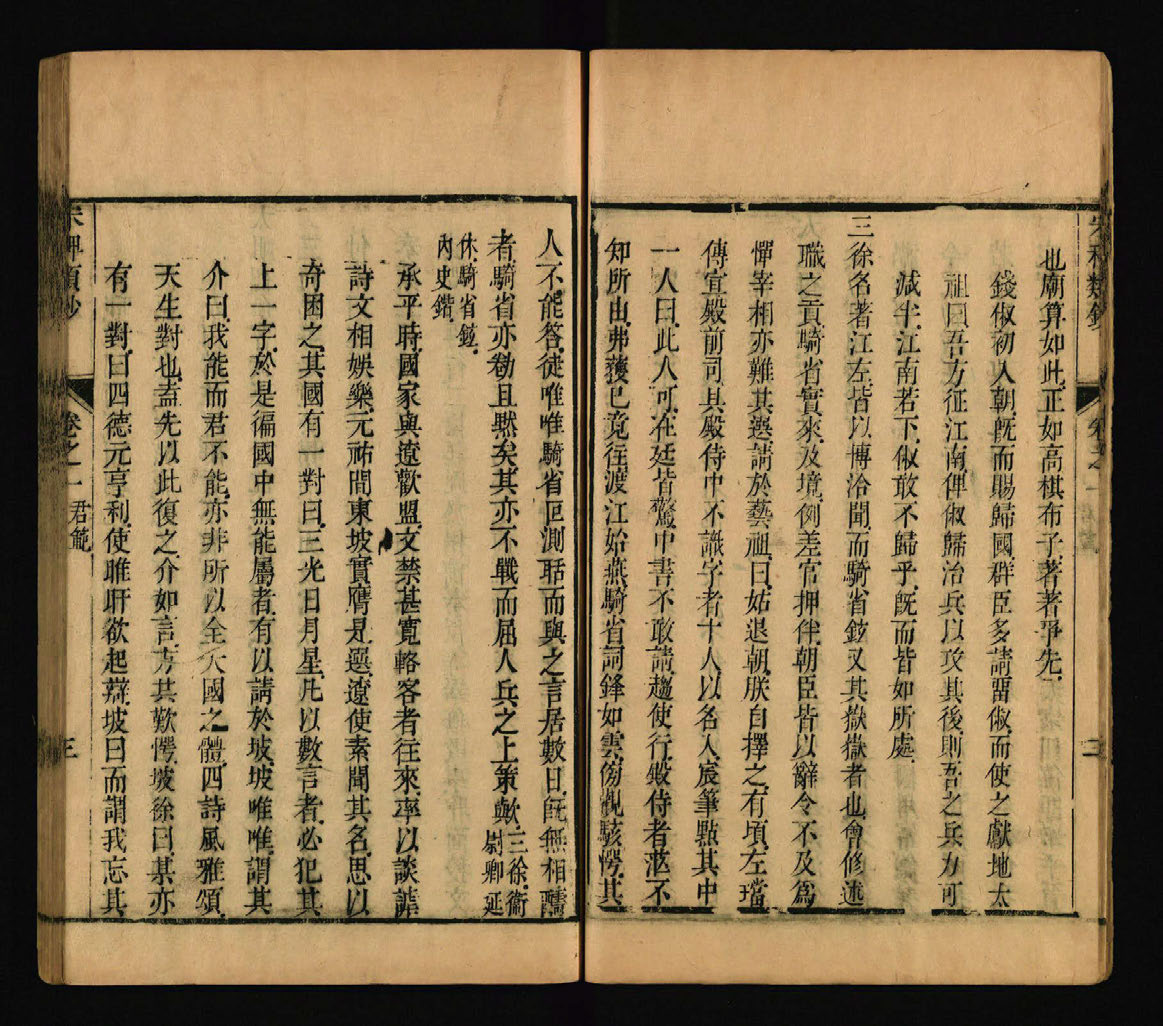 宋稗類鈔
卷之一
二
也廟算如此正如高棋布子著著爭先
錢俶初入朝旣而賜歸國群臣多請留俶而使之獻地太
祖曰吾方征江南俾俶歸治兵以攻其後則吾之兵力可
減半江南若下俶敢不歸乎旣而皆如所處
三徐名著江左皆以博洽聞而騎省鉉又其嶽嶽者也會修述
職之貢騎省實來及境例差官押伴朝臣皆以辭令不及爲
憚宰相亦難其選請於藝祖曰姑退朝朕自擇之有頃左璫
傳宣殿前司具殿侍中不識字者十人以名入宸筆點其中
一人曰此人可在廷皆驚中書不敢請趨使行殿侍者茫不
知所由弗獲已竟往渡江始燕騎省詞鋒如雲傍觀駭愕其
人不能答徒唯唯騎省叵測聒而與之言居數日旣無相酬
者騎省亦勌且默矣其亦不戰而屈人兵之上策歟三徐衞尉卿延
休騎省鉉內史鍇
承平時國家與遼歡盟文禁甚寬輅客者往來率以談謔
詩文相娛樂元祐間東坡實膺是選遼使素聞其名思以
奇困之其國有一對曰三光日月星凡以數言者必犯其
上一字於是徧國中無能屬者有以請於坡坡唯唯謂其
介曰我能而君不能亦非所以全大國之體四詩風雅頌
天生對也盍先以此復之介如言方共歎愕坡徐曰某亦
有一對曰四德元亨利使睢盱欲起辯坡曰而謂我忘其
宋稗類鈔
卷之一
君範
三